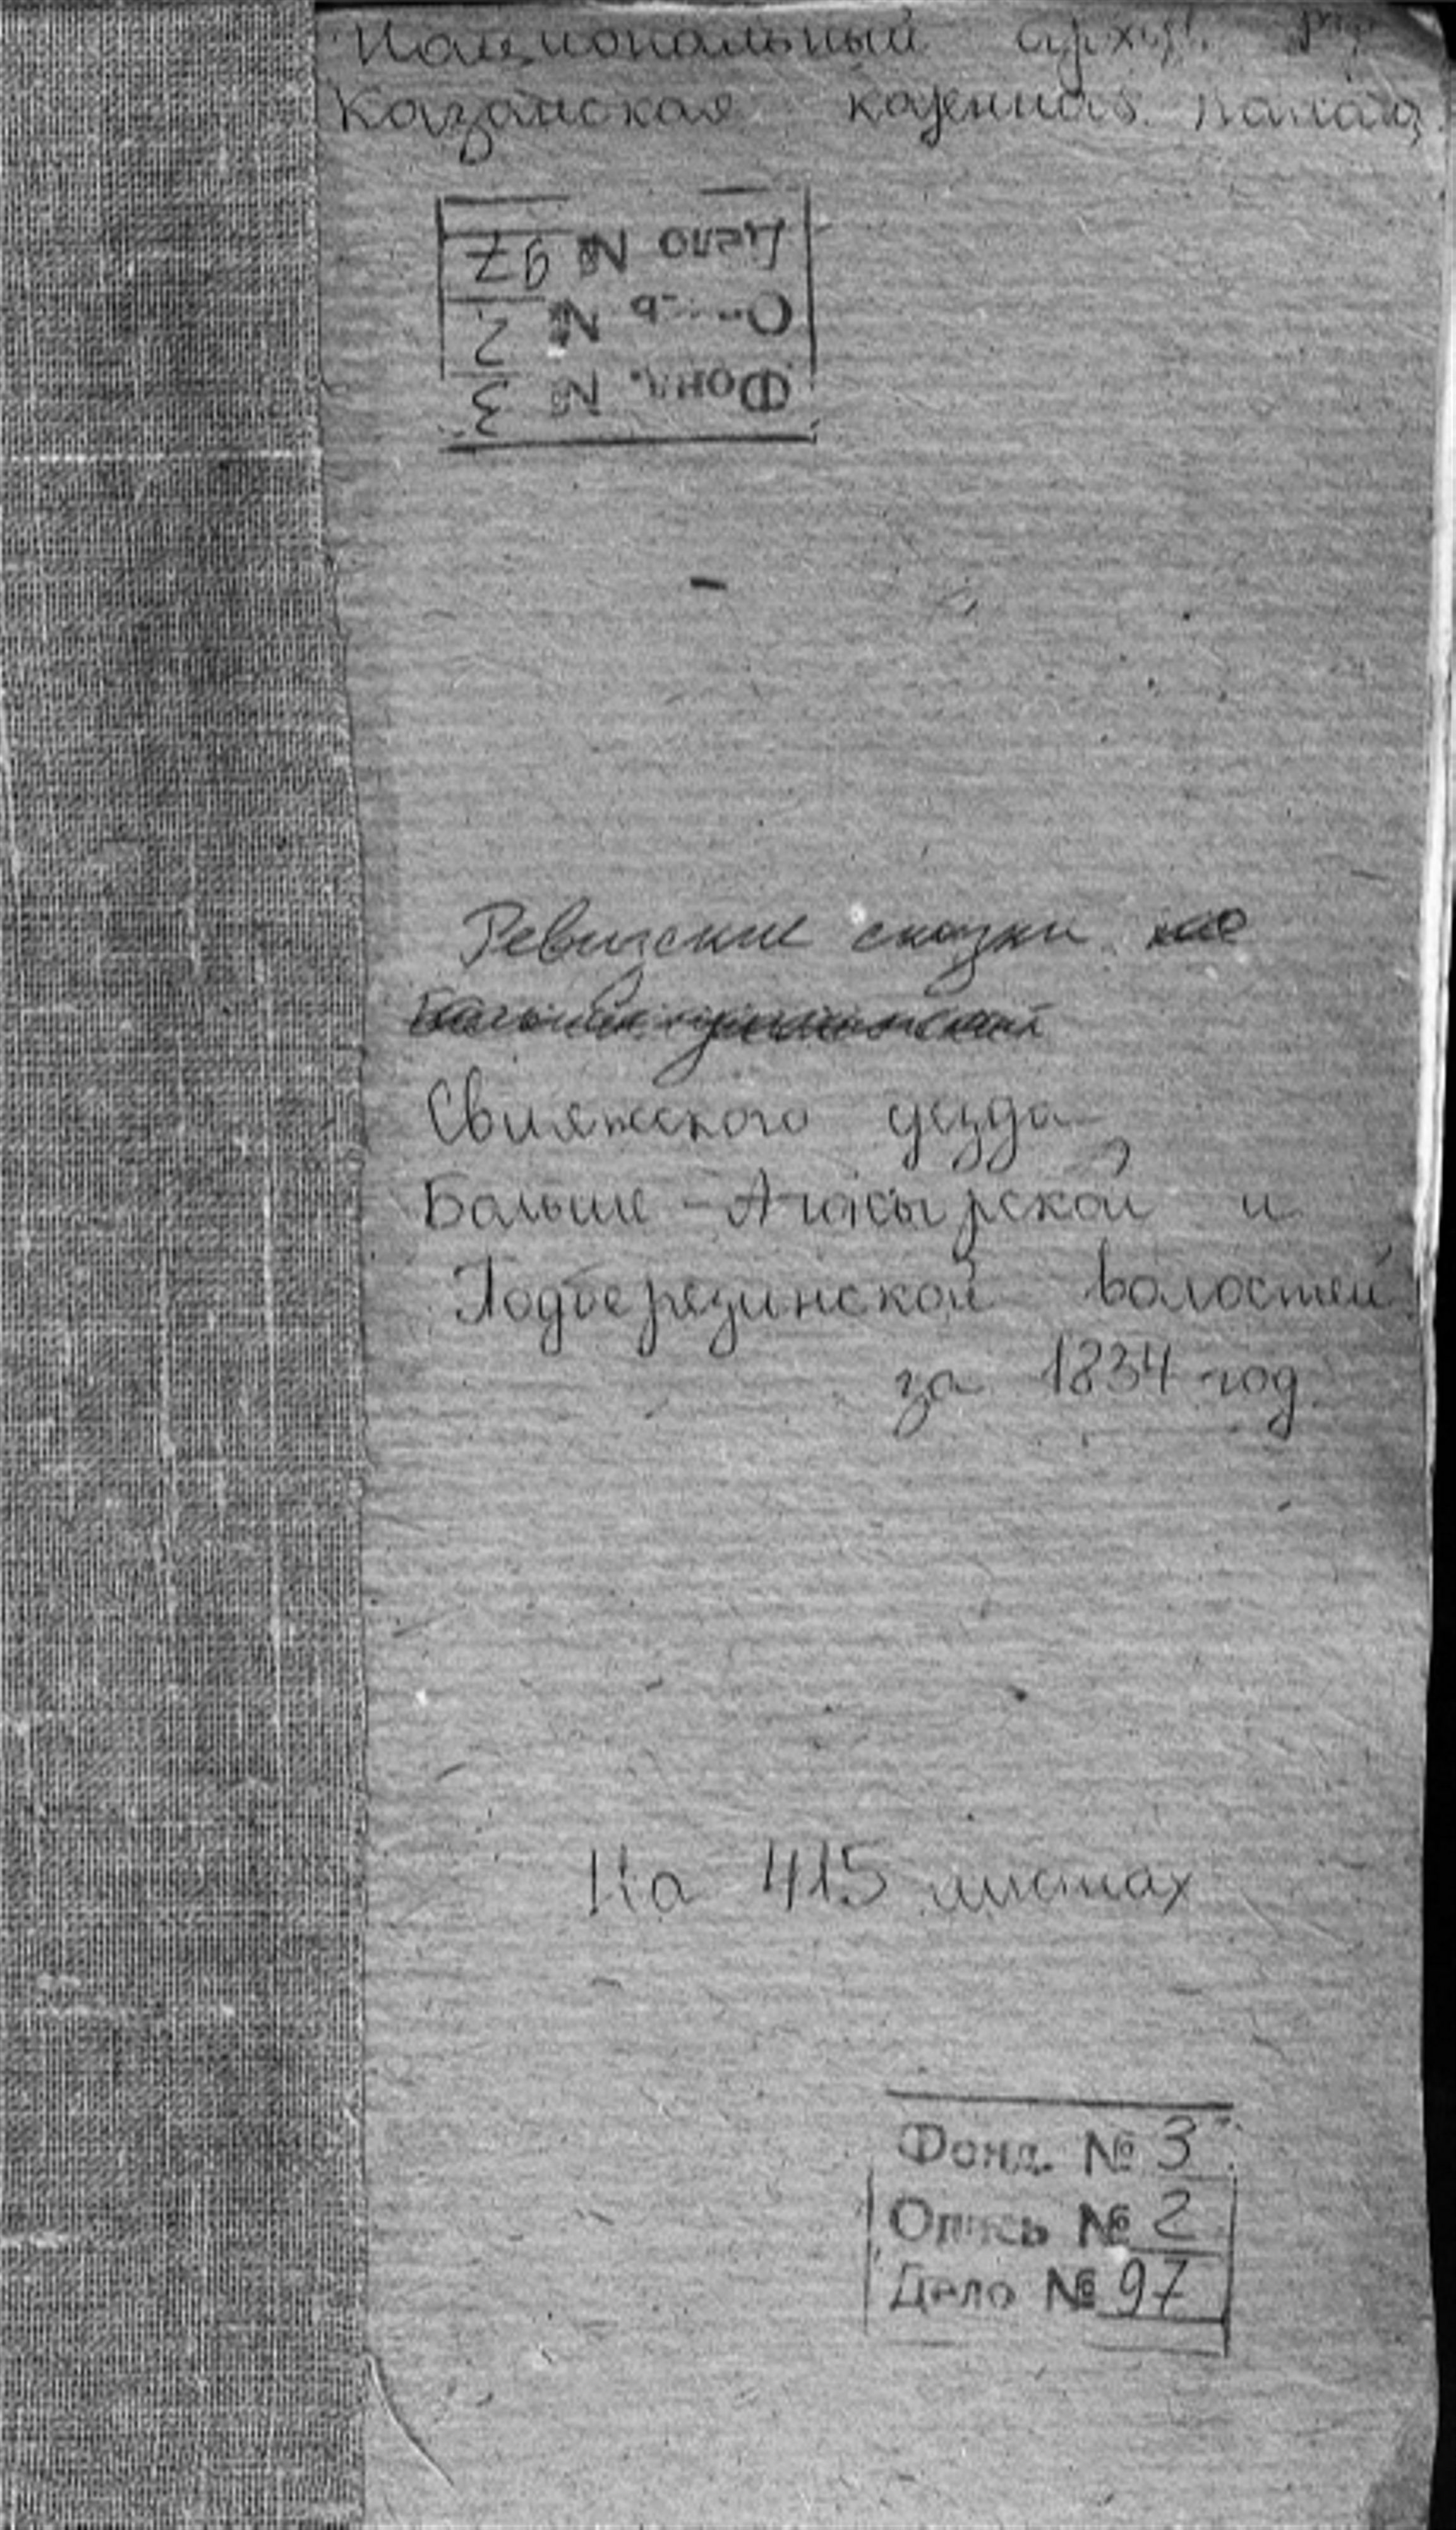 Национальный архив
Казанская казенная палата
Дело № 97
О---ь № 2
Фонд. № 3
Ревизские сказки
Свияжского уезда
Больше-Атюкырской и
Подберезинской волостей
за 1834 год
На 415 листах
Фонд. № 3
Опись № 2
Дело № 97